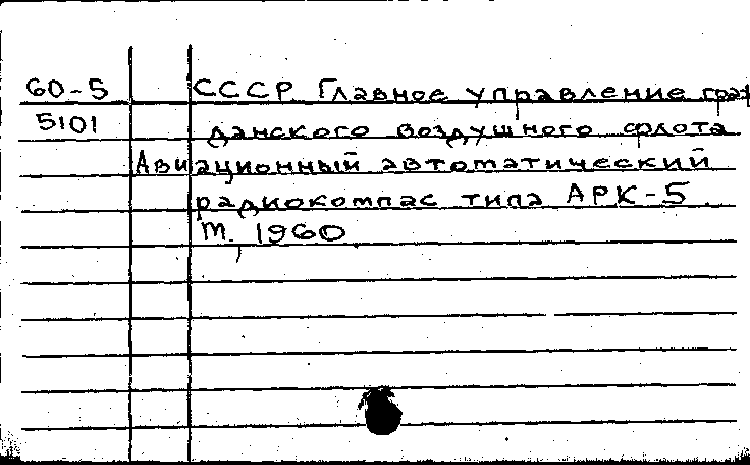 60-5 СССР Главное управление граж
5101 данского воздушного флота.
Авиационный автоматический
радиокомпас типа АРК-5.
М., 1960